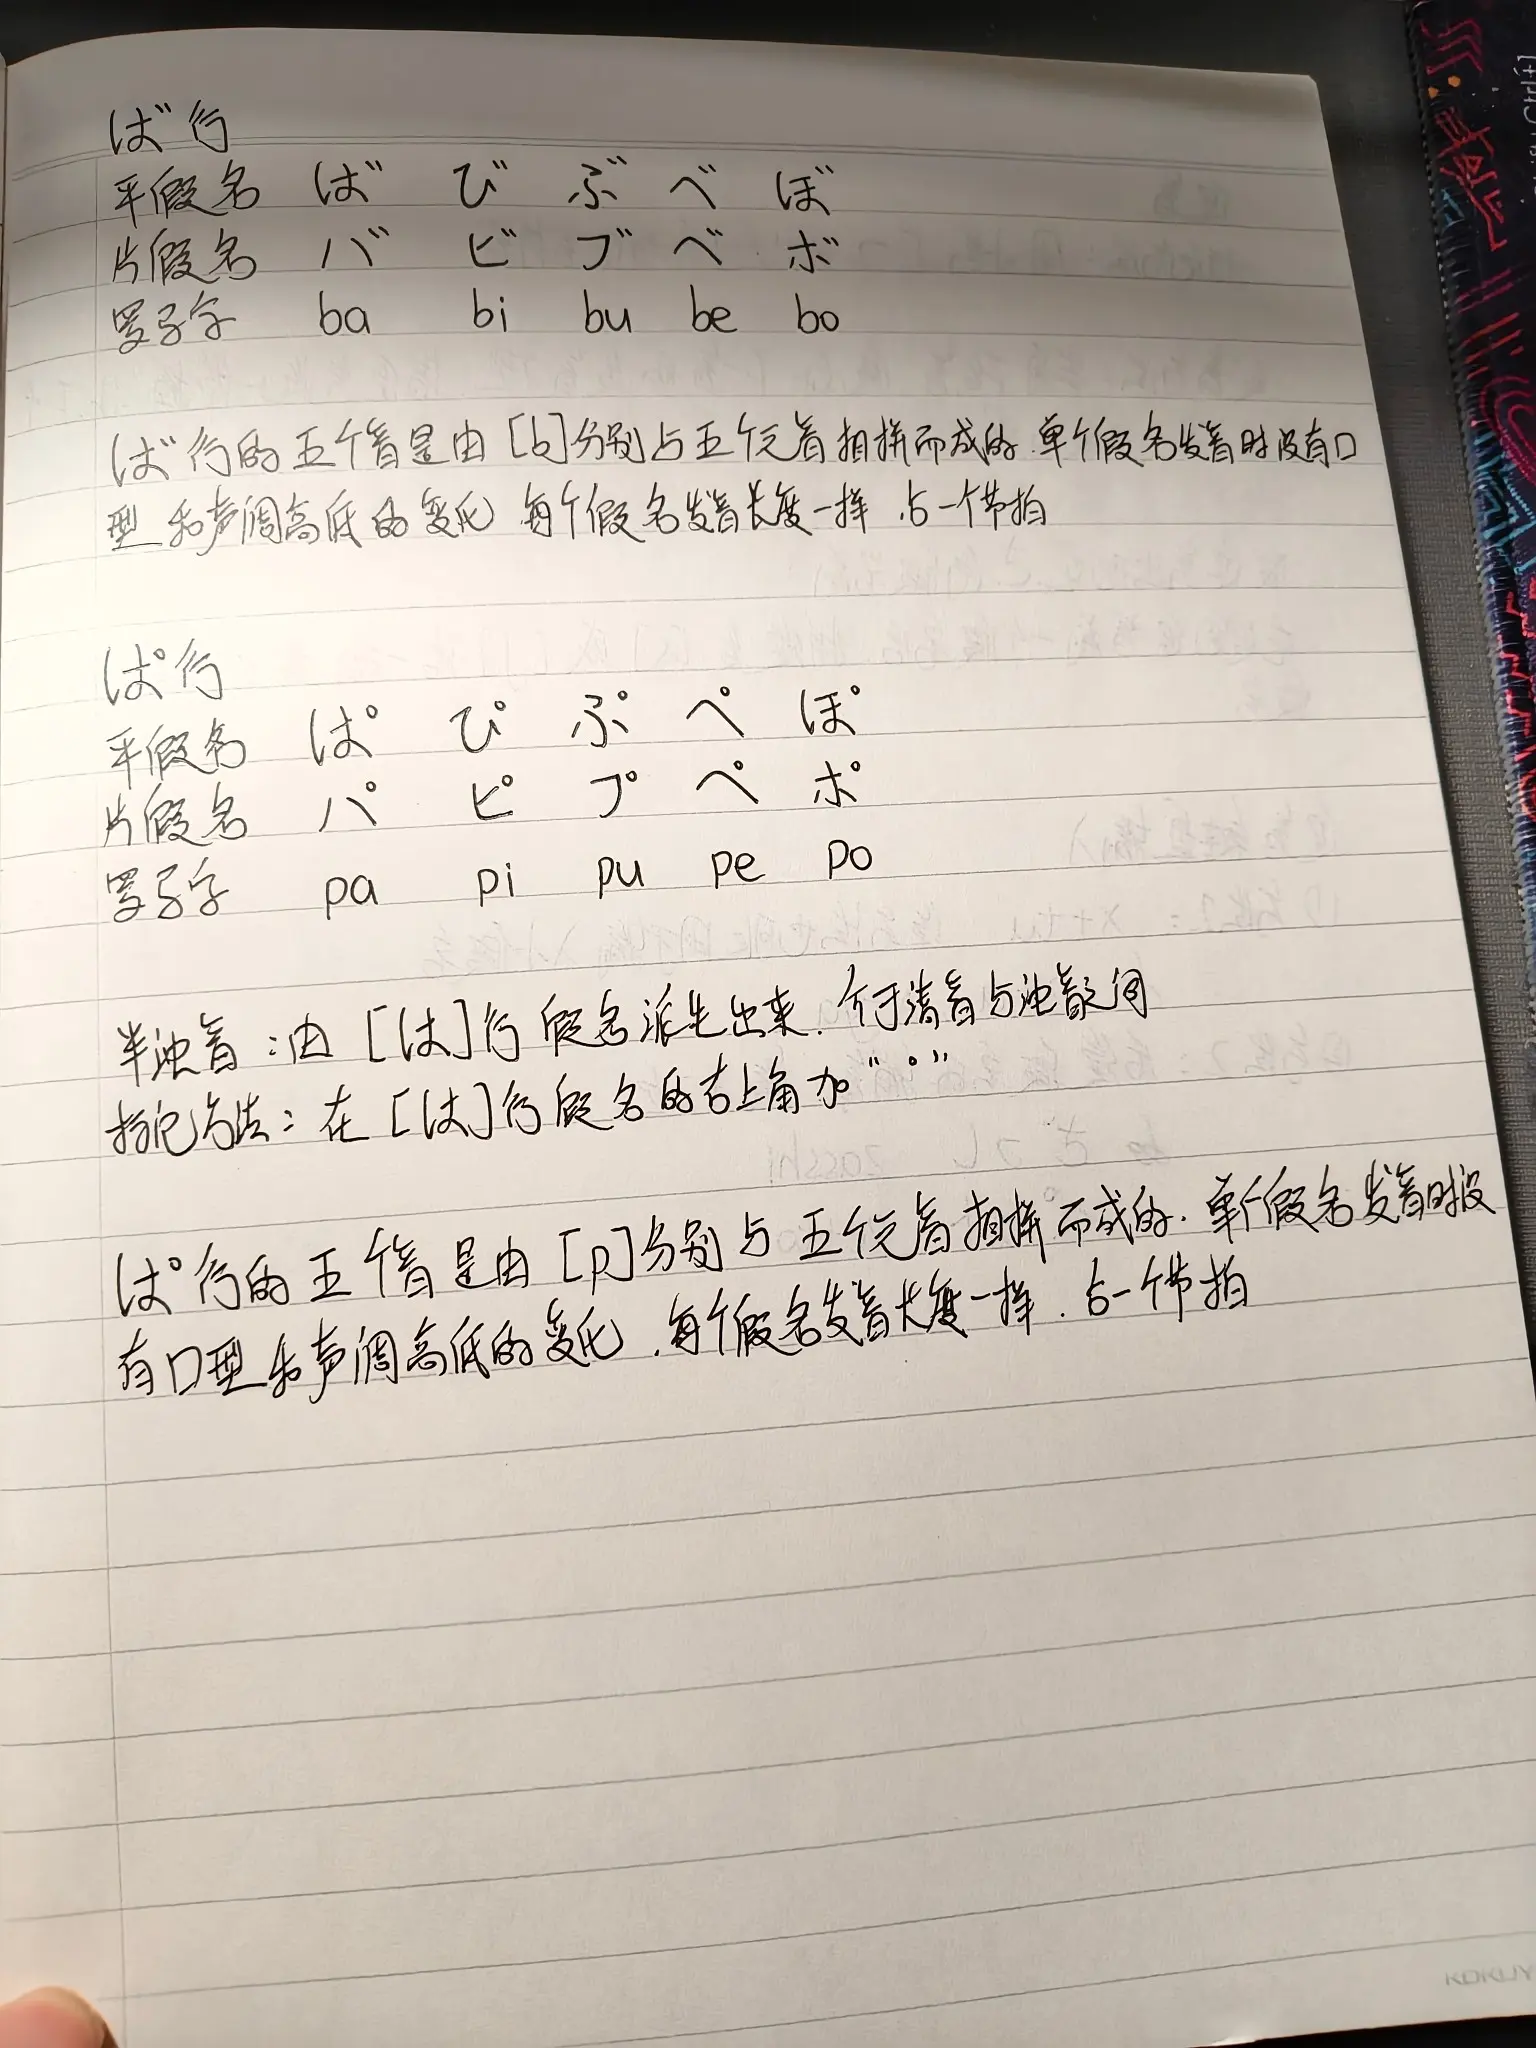 ば行
平假名 ば び ぶ べ ぼ
片假名 バ ビ ブ ベ ボ
罗马字 ba bi bu be bo
ば行的五个音是由[b]分别与五个元音相拼而成的.单个假名发音时没有口
型和声调高低的变化.每个假名发音长度一样.占一个节拍
ぱ行
平假名 ぱ ぴ ぷ ぺ ぽ
片假名 パ ピ プ ペ ポ
罗马字 pa pi pu pe po
半浊音:由[は]行假名派生出来.介于清音与浊音之间
标记方法:在[は]行假名的右上角加"°"
ぱ行的五个音是由[p]分别与五个元音相拼而成的.单个假名发音时没
有口型和声调高低的变化.每个假名发音长度一样.占一个节拍
KOKUY